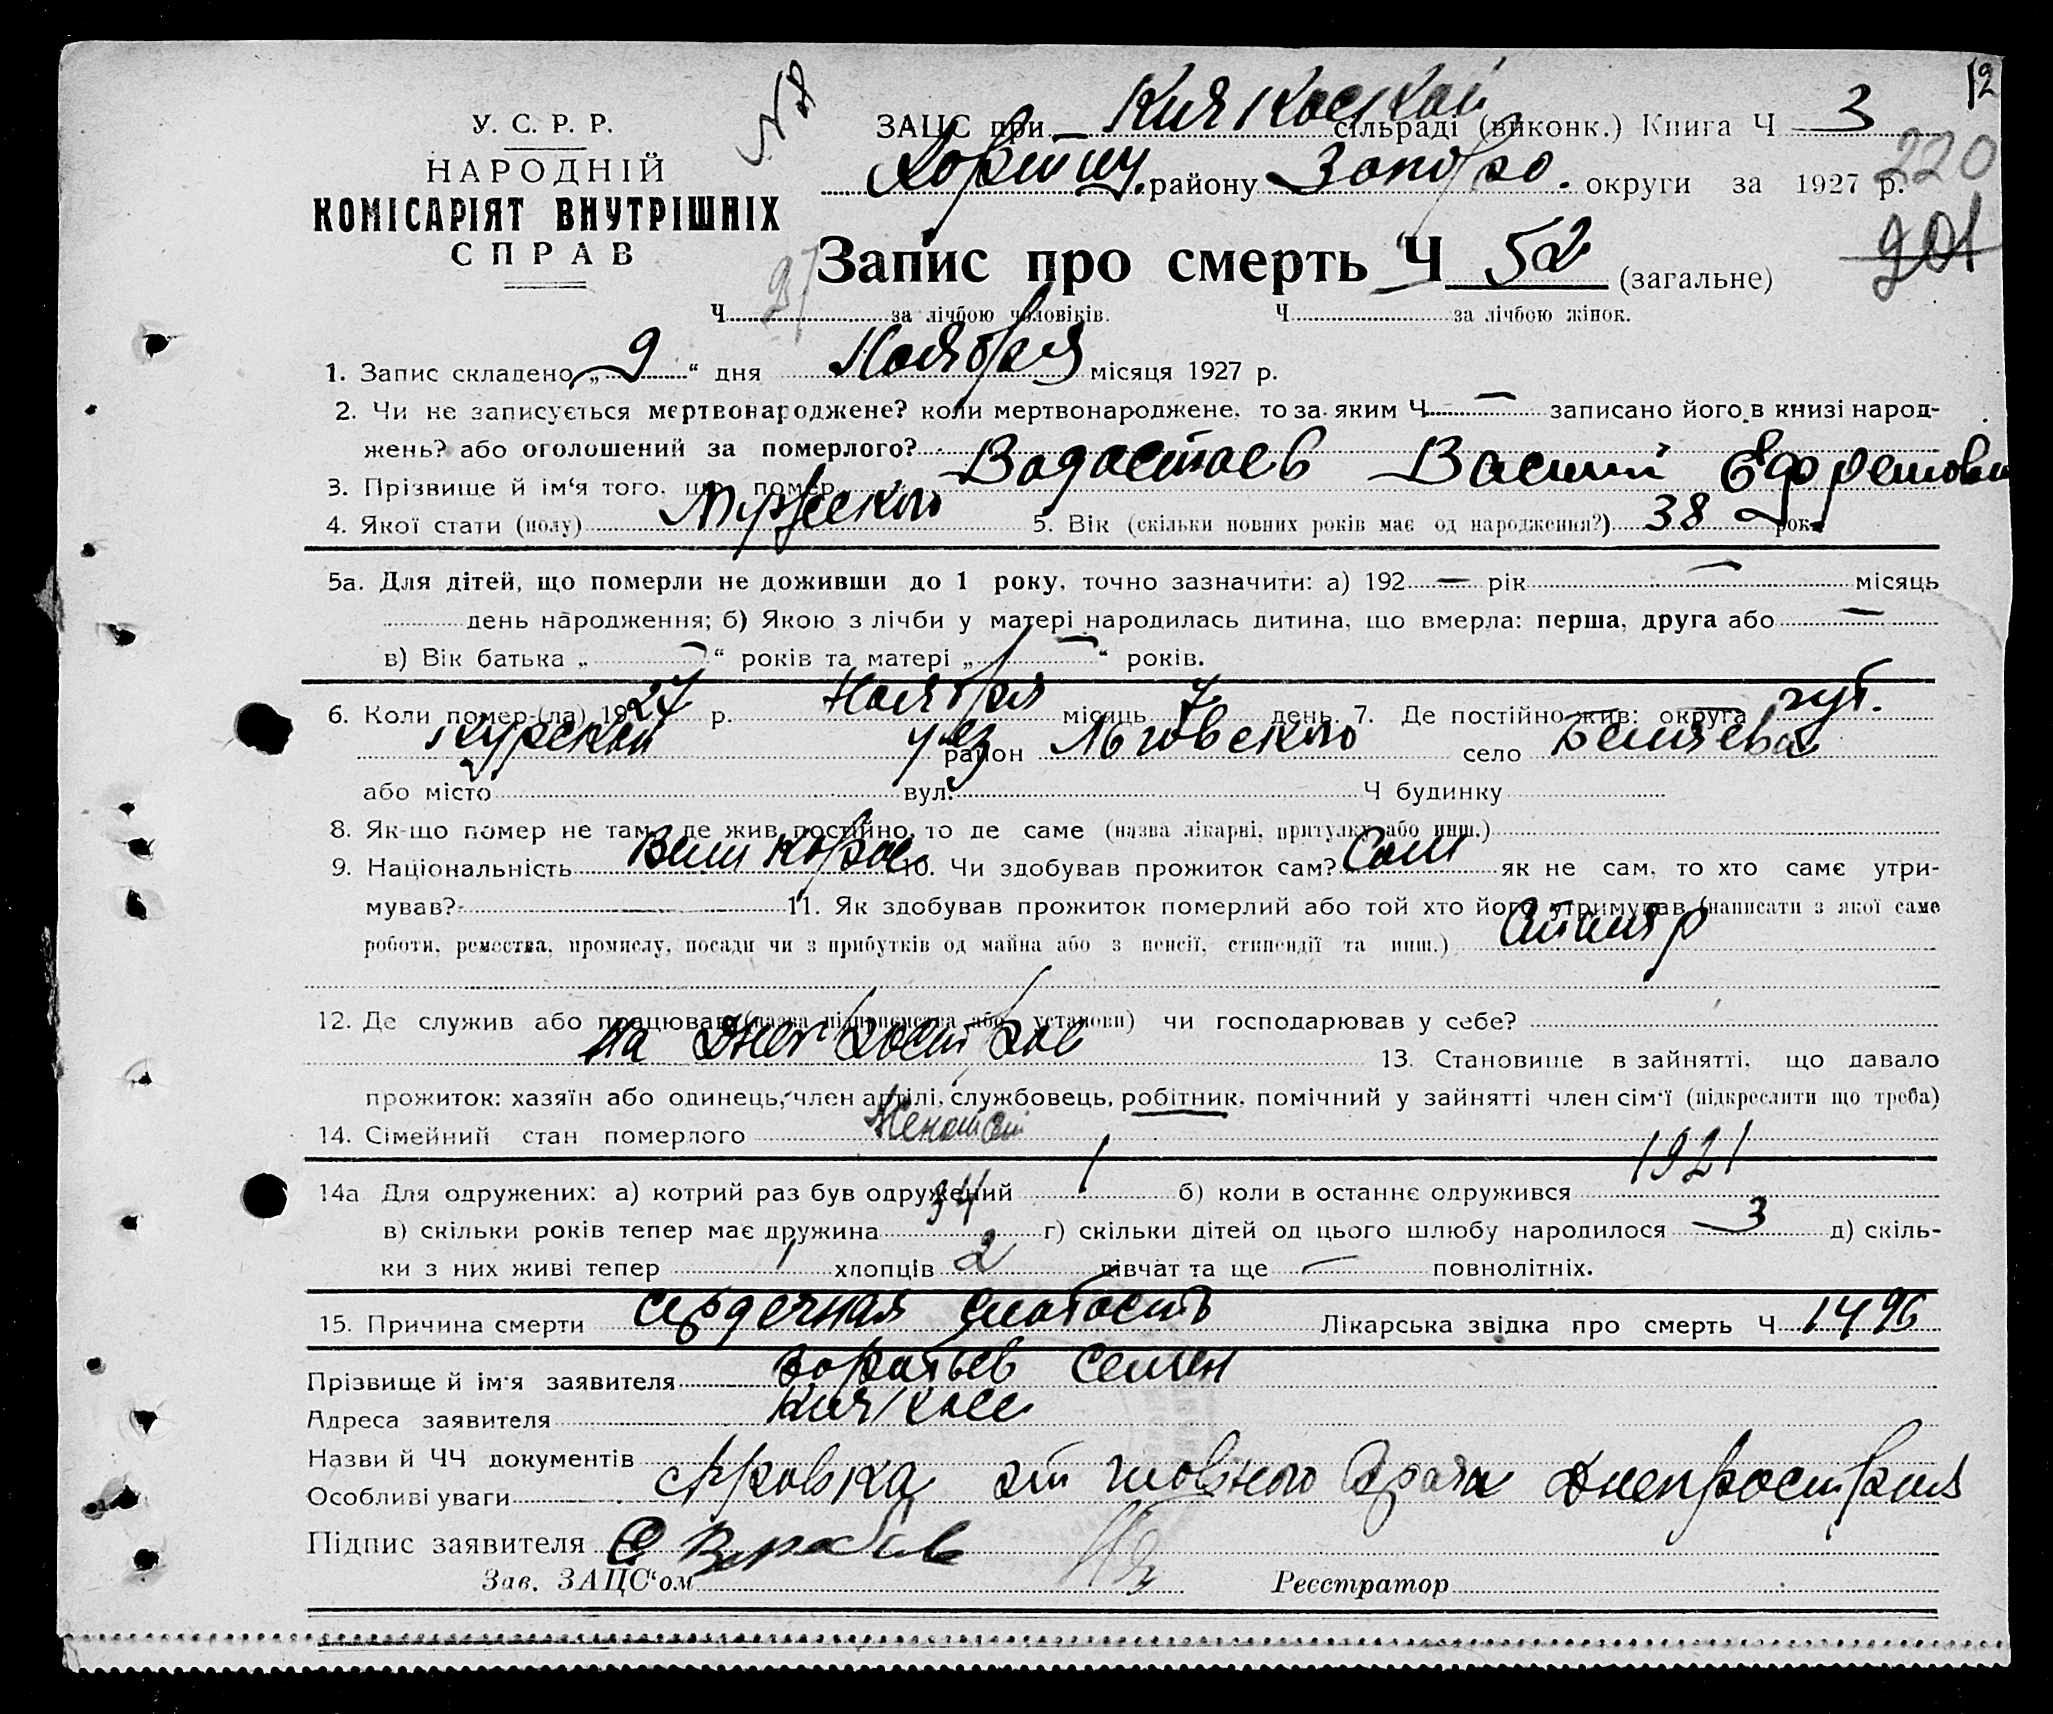 12
№ 8
У. С. Р. Р.
НАРОДНІЙ
КОМІСАРІЯТ ВНУТРІШНІХ
СПРАВ
ЗАЦС при Кичкаской сільраді (виконк.) Книга Ч 3
Хортиц. району Запор. округи за 1927 р.
220
201
Запис про смерть Ч 52 (загальне)
Ч за лічбою чоловіків. Ч за лічбою жінок.
1. Запис складено „ 9 “ дня Ноября місяця 1927 р.
2. Чи не записується мертвонароджене? коли мертвонароджене, то за яким Ч — записано його в книзі народ-
жень? або оголошений за померлого?
3. Прізвище й ім‘я того, що помер Василий
4. Якої стати (полу) Мужского 5. Вік (скільки повних років має од народження?) 38 рок.
5а. Для дітей, що померли не доживши до 1 року, точно зазначити: а) 192 — рік — місяць
день народження; б) Якою з лічби у матері народилась дитина, що вмерла: перша, друга або —
в) Вік батька „ — “ років та матері „ — “ років.
6. Коли помер-(ла) 1927 р. Ноября місяць 7 день. 7. Де постійно жив: округа губ.
Курской уез район Льговского село
або місто вул. Ч будинку
8. Як-що помер не там, де жив постійно, то де саме (назва лікарні, притулку або инш.)
9. Національність 10. Чи здобував прожиток сам? Сам як не сам, то хто саме утри-
мував? 11. Як здобував прожиток померлий або той хто його утримував (написати з якої саме
роботи, ремества, промислу, посади чи з прибутків од майна або з пенсії, стипендії та инш.)
12. Де служив або працював (назва підприємства або установи) чи господарював у себе?
на 13. Становище в зайнятті, що давало
прожиток: хазяїн або одинець, член артілі, службовець, робітник, помічний у зайнятті член сім‘ї (підкреслити що треба)
14. Сімейний стан померлого Женатый
14а Для одружених: а) котрий раз був одружений 1 б) коли в останнє одружився 1921
в) скільки років тепер має дружина 34 г) скільки дітей од цього шлюбу народилося 3 д) скіль-
ки з них живі тепер 1 хлопців 2 дівчат та ще — повнолітніх.
15. Причина смерти сердечная слабость Лікарська звідка про смерть Ч 1496
Прізвище й ім‘я заявителя Семен
Адреса заявителя Кичкасс
Назви й ЧЧ документів
Особливі уваги справка от главного врача Днепростроя
Підпис заявителя
Зав. ЗАЦС‘ом Реєстратор